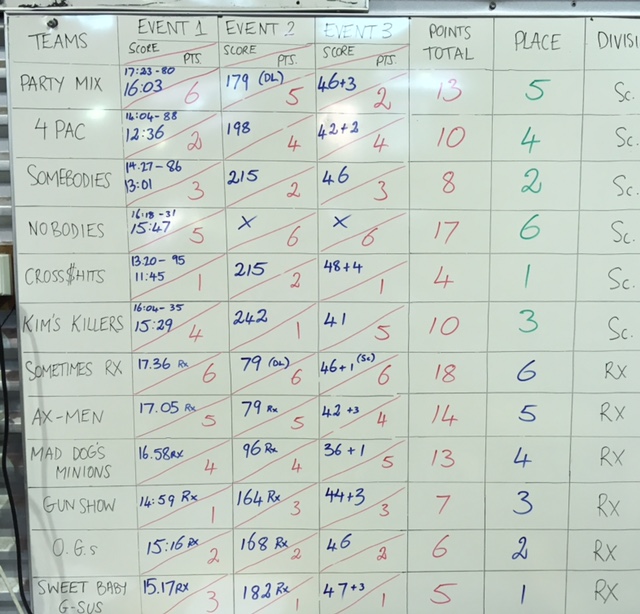 TEAMS EVENT 1 EVENT 2 EVENT 3 POINTS TOTAL PLACE DIVISI
SCORE PTS. SCORE PTS. SCORE PTS.
PARTY MIX 17:23-80 16:03 6 179 (DL) 5 46+3 2 13 5 Sc.
4 PAC 14:04-88 12:36 2 198 4 42+2 4 10 4 Sc.
SOMEBODIES 14.27-86 13:01 3 215 2 46 3 8 2 Sc.
NOBODIES 16:18-31 15:47 5 X 6 X 6 17 6 Sc.
CROSS$HITS 13.20-95 11:45 1 215 2 48+4 1 4 1 Sc.
KIM'S KILLERS 16:04-35 15:29 4 242 1 41 5 10 3 Sc.
SOMETIMES RX 17.36 Rx 6 79 (DL) 6 46+1 (Sc) 6 18 6 RX
AX-MEN 17.05 Rx 5 79 Rx 5 42+3 4 14 5 RX
MAD DOG'S MINIONS 16.58 RX 4 96 Rx 4 36+1 5 13 4 RX
GUN SHOW 14:59 Rx 1 164 Rx 3 44+3 3 7 3 RX
O.G.s 15:16 Rx 2 168 Rx 2 46 2 6 2 RX
SWEET BABY G-SUS 15.17 RX 3 182 Rx 1 47+3 1 5 1 RX